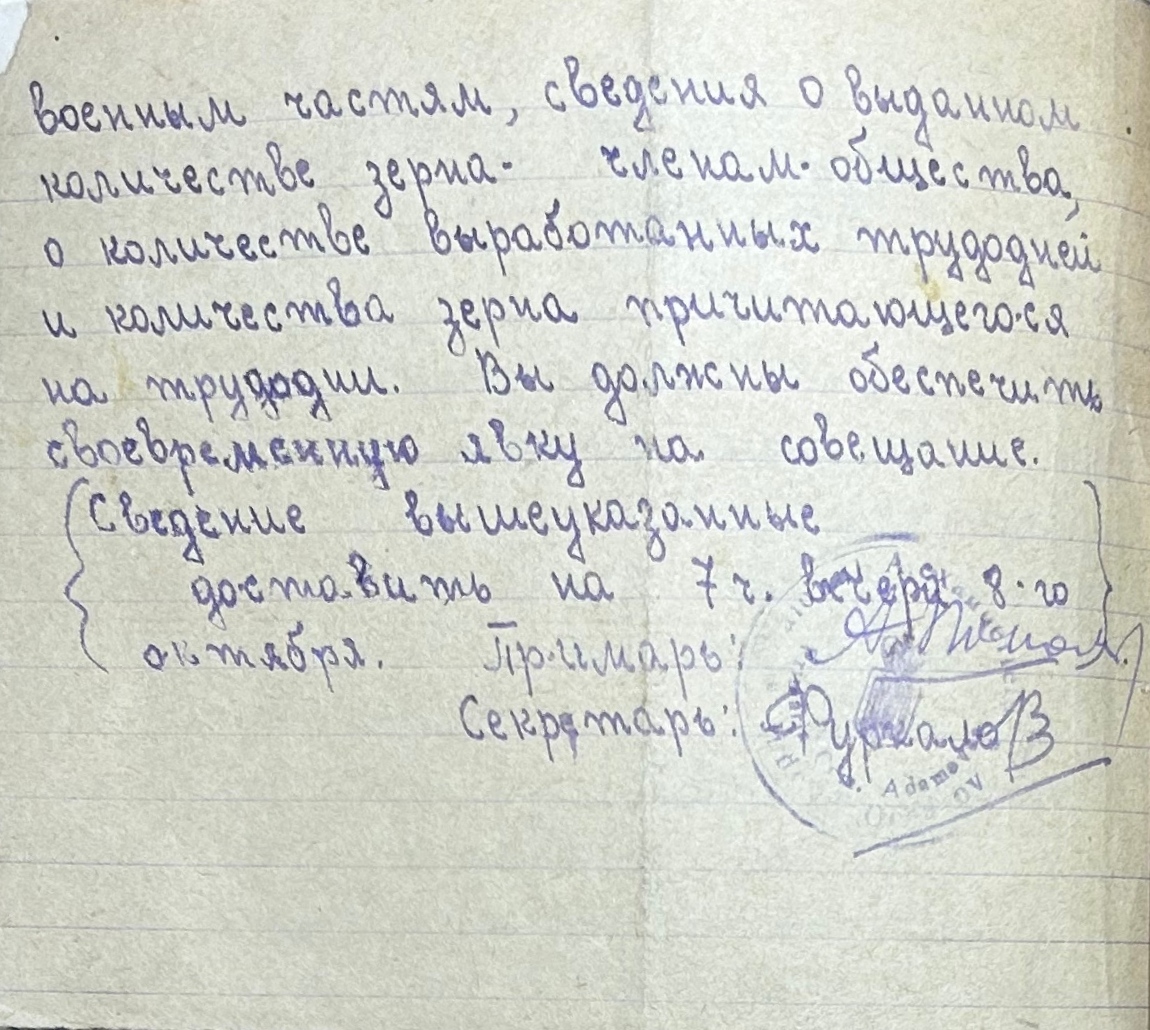 военным частям, сведения о выданном
количестве зерна- членам-общества,
о количестве выработанных трудодней
и количества зерна причитающегося
на трудодни. Вы должны обеспечить
своевременную явку на совещание.
Сведение вышеуказанные
доставить на 7 ч. вечера 8-го
октября. Примарь:
Секретарь:
Adam